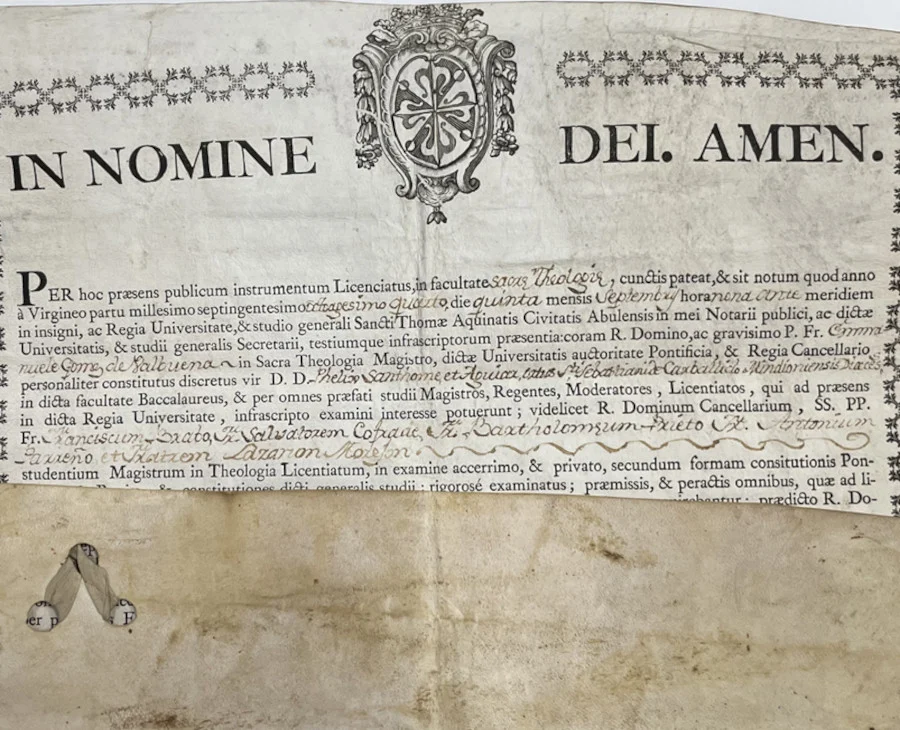 IN NOMINE DEI. AMEN.
PER hoc præsens publicum instrumentum Licenciatus, in facultate Sacræ Theologiæ, cunctis pateat, & sit notum quod anno
à Virgineo partu millesimo septingentesimo octagesimo quarto, die quinta mensis Septembris hora nona ante meridiem
in insigni, ac Regia Universitate, & studio generali Sancti Thomæ Aquinatis Civitatis Abulensis in mei Notarii publici, ac dictæ
Universitatis, & studii generalis Secretarii, testiumque infrascriptorum præsentia: coram R. Domino, ac gravisimo P. Fr. Emma
nuele Gomz. de Valbuena in Sacra Theologia Magistro, dictæ Universitatis auctoritate Pontificia, & Regia Cancellario,
personaliter constitutus discretus vir D. D. Phelix Santhome, et Aguiar, Mindioniensis Diæces.
in dicta facultate Baccalaureus, & per omnes præfati studii Magistros, Regentes, Moderatores, Licentiatos, qui ad præsens
in dicta Regia Universitate, infrascripto examini interesse potuerunt; videlicet R. Dominum Cancellarium, SS. PP.
Fr. Franciscum Brato, Fr. Salvatorem Cofrade, Fr. Bartholomeum Prieto Fr. Antonium
Parreño et Fratrem Lazarum
studentium Magistrum in Theologia Licentiatum, in examine accerrimo, & privato, secundum formam consitutionis Pon-
& constitutiones dicti generalis studii: rigorosé examinatus; præmissis, & peractis omnibus, quæ ad li-
prædicto R. Do-
er p
F